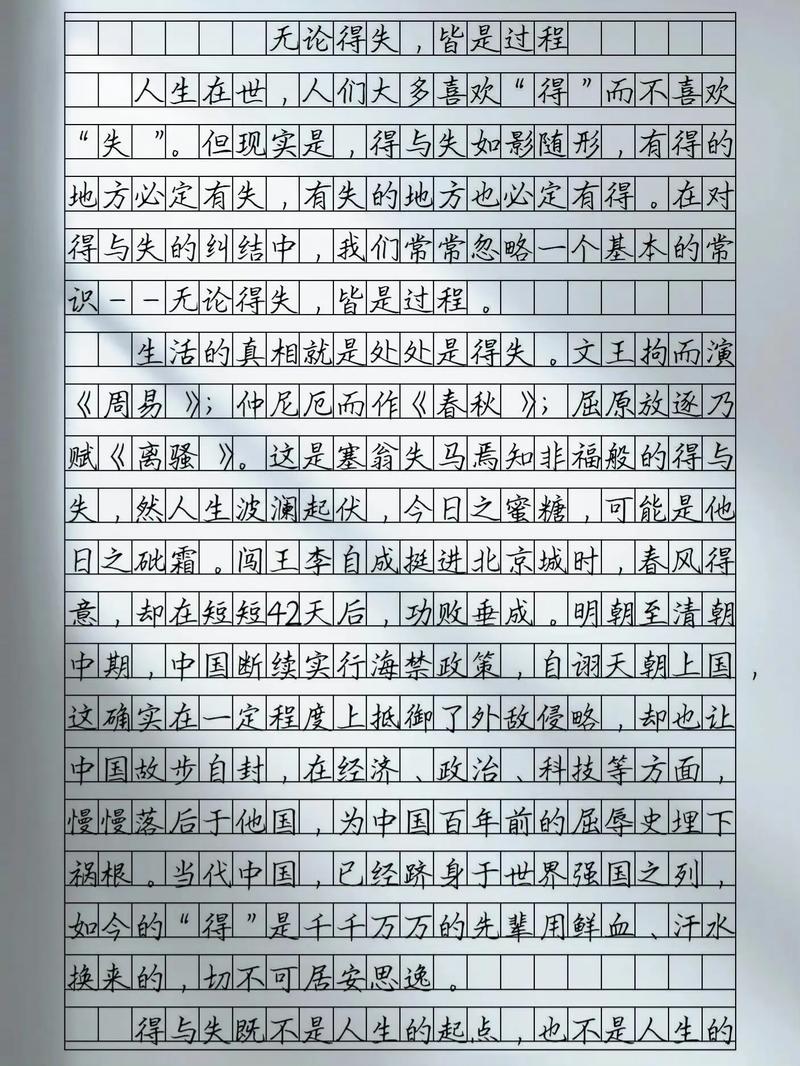 无论得失，皆是过程
人生在世，人们大多喜欢“得”而不喜欢
“失”。但现实是，得与失如影随形，有得的
地方必定有失，有失的地方也必定有得。在对
得与失的纠结中，我们常常忽略一个基本的常
识--无论得失，皆是过程。
生活的真相就是处处是得失。文王拘而演
《周易》；仲尼厄而作《春秋》；屈原放逐乃
赋《离骚》。这是塞翁失马焉知非福般的得与
失，然人生波澜起伏，今日之蜜糖，可能是他
日之砒霜。闯王李自成挺进北京城时，春风得
意，却在短短42天后，功败垂成。明朝至清朝
中期，中国断续实行海禁政策，自诩天朝上国，
这确实在一定程度上抵御了外敌侵略，却也让
中国故步自封，在经济、政治、科技等方面，
慢慢落后于他国，为中国百年前的屈辱史埋下
祸根。当代中国，已经跻身于世界强国之列，
如今的“得”是千千万万的先辈用鲜血、汗水
换来的，切不可居安思逸。
得与失既不是人生的起点，也不是人生的